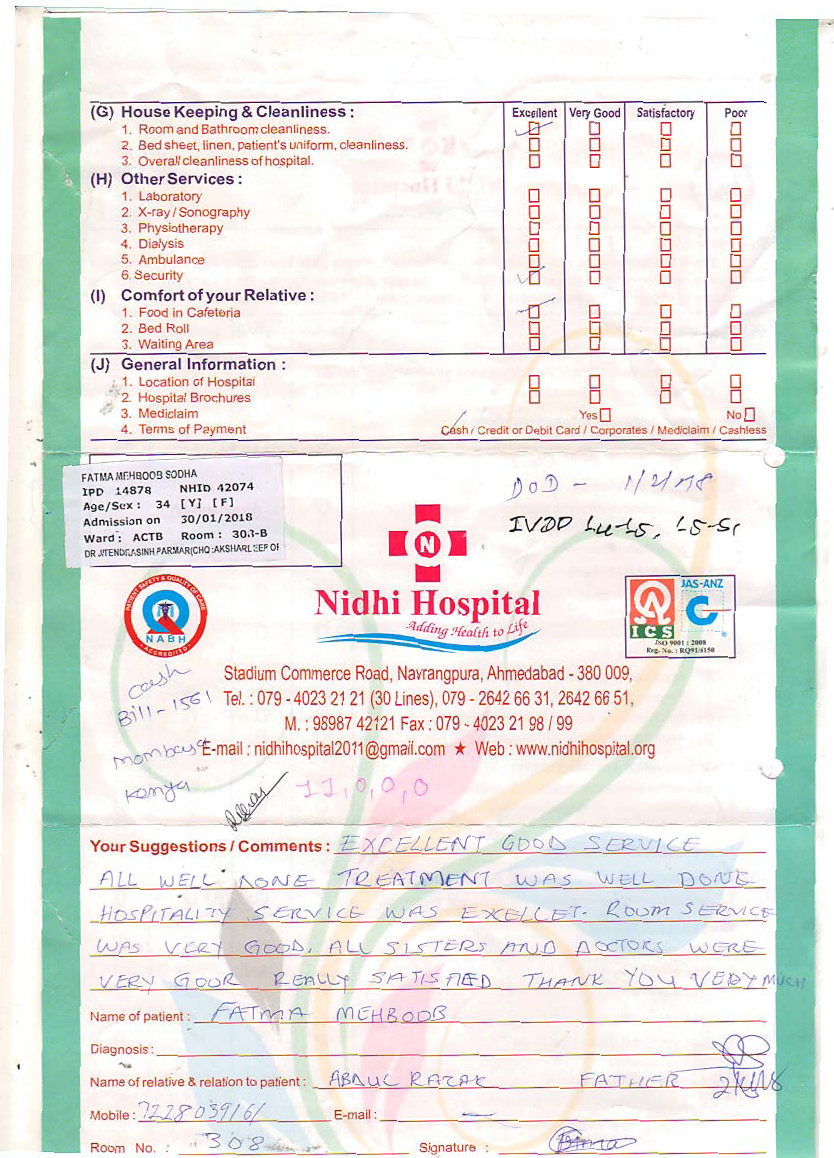 (G) House Keeping & Cleanliness : Excellent Very Good Satisfactory Poor
1. Room and Bathroom cleanliness.
2. Bed sheet, linen, patient's uniform, cleanliness.
3. Overall cleanliness of hospital.
(H) Other Services :
1. Laboratory
2. X-ray / Sonography
3. Physiotherapy
4. Dialysis
5. Ambulance
6. Security
(I) Comfort of your Relative :
1. Food in Cafeteria
2. Bed Roll
3. Waiting Area
(J) General Information :
1. Location of Hospital
2. Hospital Brochures
3. Mediclaim Yes No
4. Terms of Payment Cash / Credit or Debit Card / Corporates / Mediclaim / Cashless
FATMA MEHBOOB SODHA
IPD 14878 NHID 42074
Age/Sex : 34 [Y] [F]
Admission on 30/01/2018
Ward : ACTB Room : 303-B
DR JITENDRASINH PARMAR(CHQ :AKSHARDEEP OF
DOD - 1/2/18
IVDP L4-L5, L5-S1
N
PATIENT SAFETY & QUALITY OF CARE
NABH
ACCREDITED
Nidhi Hospital
Adding Health to Life
JAS-ANZ
ICS
ISO 9001 : 2008
Reg. No. : RQ91/6150
Stadium Commerce Road, Navrangpura, Ahmedabad - 380 009,
Tel. : 079 - 4023 21 21 (30 Lines), 079 - 2642 66 31, 2642 66 51,
M. : 98987 42121 Fax : 079 - 4023 21 98 / 99
E-mail : nidhihospital2011@gmail.com ★ Web : www.nidhihospital.org
cash
Bill - 1561
Mombasa
Kenya
11,0,0,0
Your Suggestions / Comments : EXCELLENT GOOD SERVICE
ALL WELL DONE TREATMENT WAS WELL DONE
HOSPITALITY SERVICE WAS EXCELLET. ROOM SERVICE
WAS VERY GOOD, ALL SISTERS AND DOCTORS WERE
VERY GOOR REALLY SATISFIED THANK YOU VERY MUCH
Name of patient : FATMA MEHBOOB
Diagnosis :
Name of relative & relation to patient : ABDUL RAZAK FATHER
Mobile : 7228039161 E-mail : —
Room No. : 308 Signature :